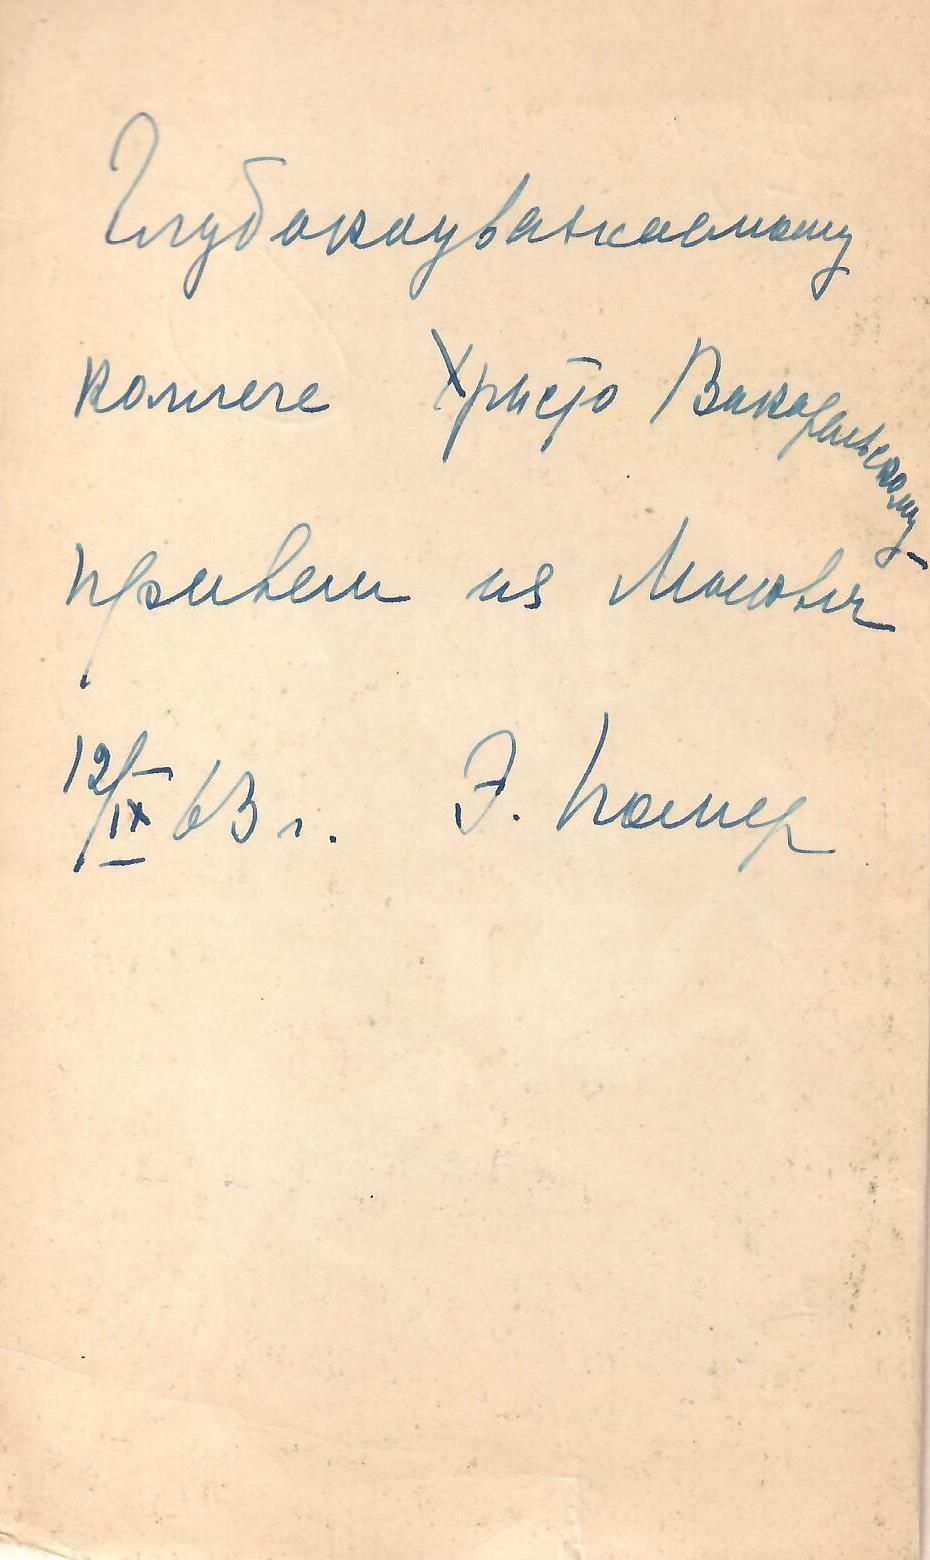 Глубокоуважаемому
коллеге Христо Вакарельскому
привет из Москвы
12/IX 63 г. Э.